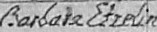 Barbara Etzelin